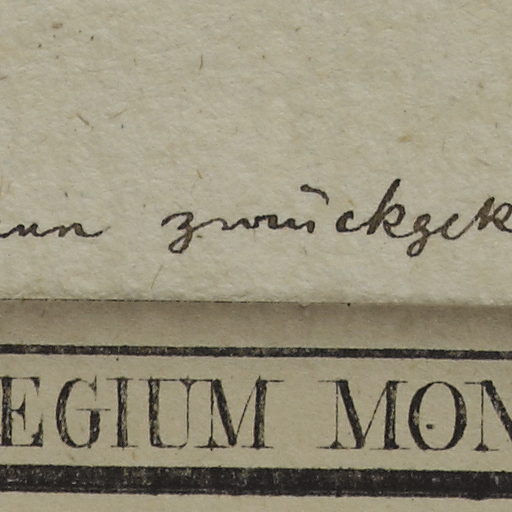 zurückgek
EGIUM MON